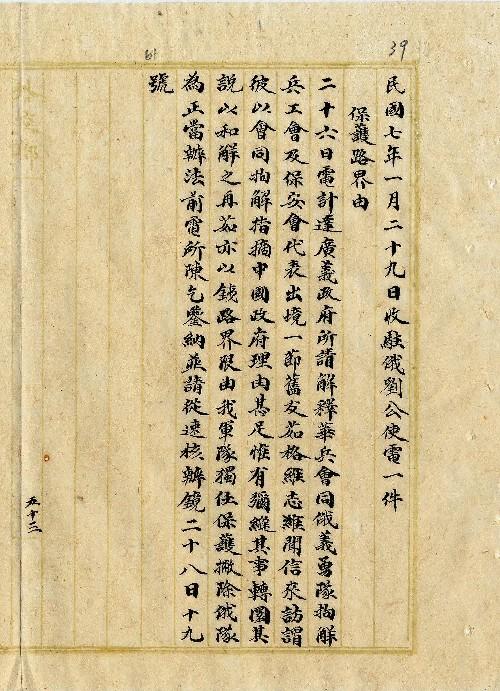 39
民國七年一月二十九日收駐俄劉公使電一件
保護路界由
二十六日電計達廣義政府所請解釋華兵會同俄義勇隊拘解
兵工會及保安會代表出境一節舊友茹格維志維聞信來訪謂
彼以會同拘解指摘中國政府理由甚足惟有彌縫其事轉圜其
說以和解之再茹亦以鉄路界限由我軍隊獨任保護撤除俄隊
為正當辦法前電所陳乞鑒納並請從速核辦鏡二十八日十九
號
五十三